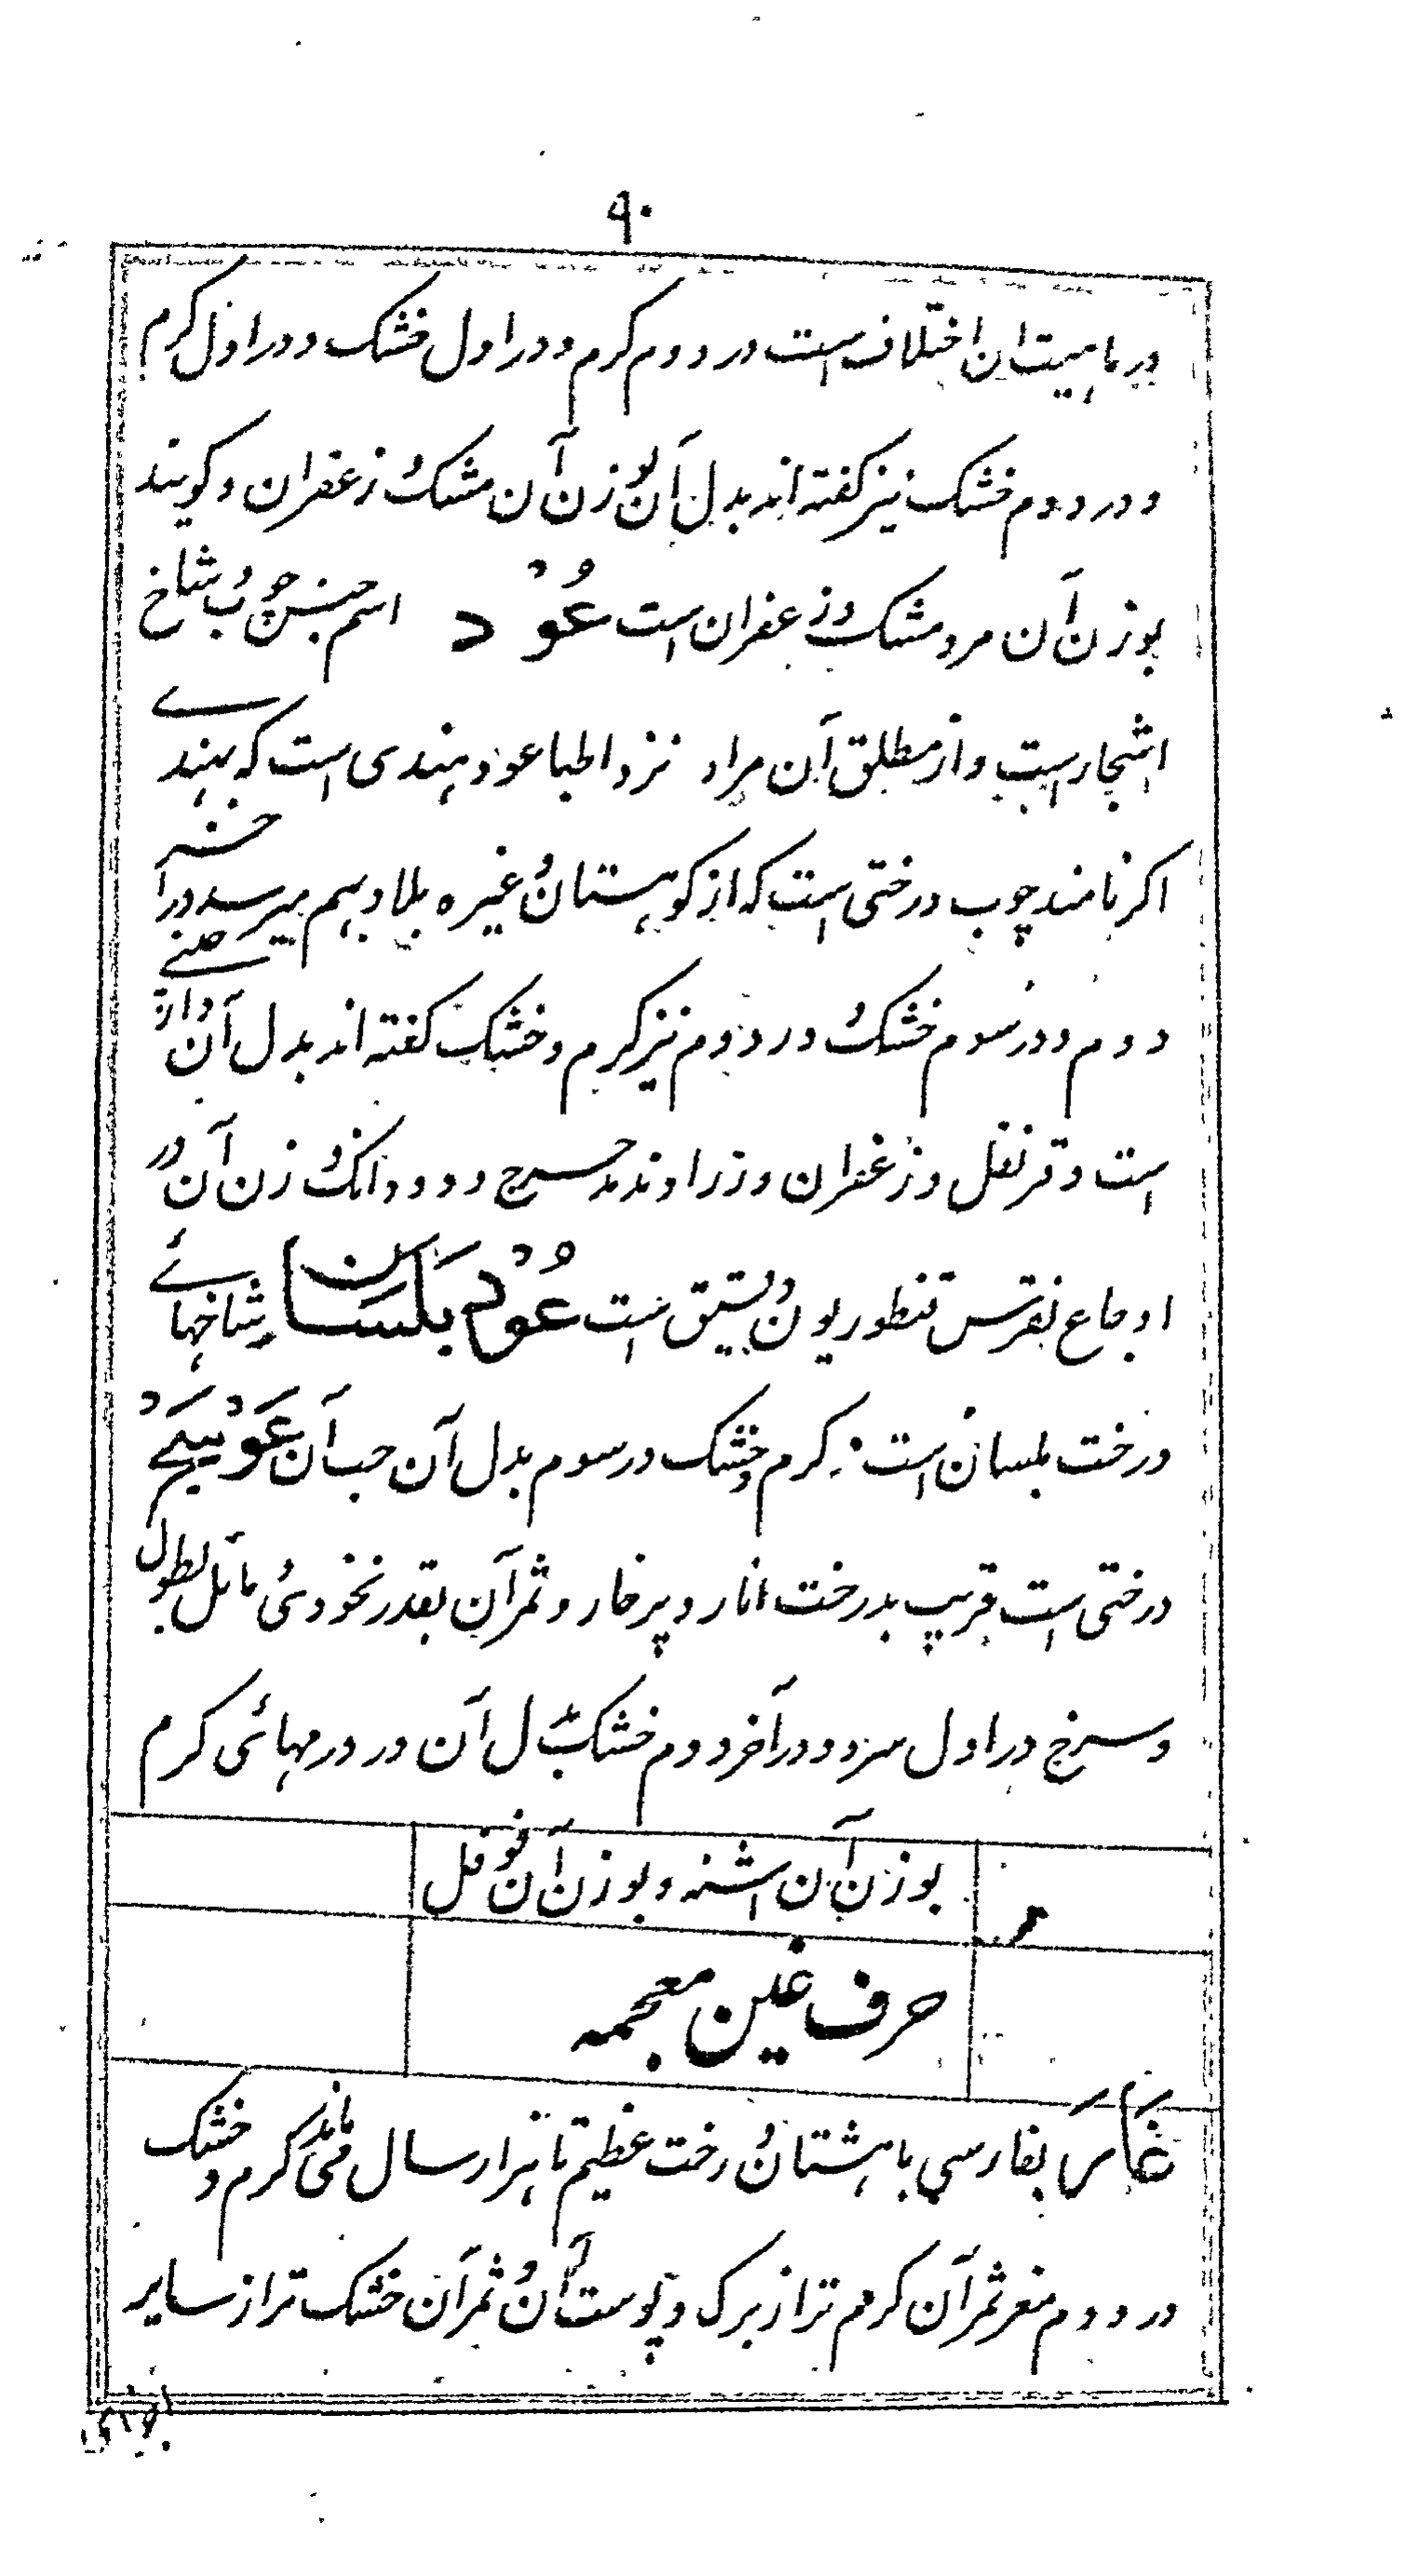 ۹۰
در ماهیت ان اختلاف است در دوم کرم و در اول خشک و در اول کرم
و در دوم خشک نیز کفته اند بدل آن بوزن آن مشک و زعفران و کویند
بوزن آن مرو مشک و زعفران است عُوْد اسم جنس چوب و شاخ
اشجار است و از مطلق آن مراد نزد اطبا عود هندی است که بهندے
اکر نامند چوب درختی است که از کوهستان و غیره بلاد بهم میرسد در آخر
دوم و در سوم خشک و در دوم نیز کرم و خشک کفته اند بدل آن دار صنے
است و قرنفل و زعفران و زراوند مدحرج و دو دانک وزن آن در
اوجاع نقرس قنطوریون و بستیق است عُوْد بَلَسَان شاخهائے
درخت بلسان است کرم و خشک در سوم بدل آن حب آن عَوْسَجْ
درختی است قریب بدرخت انار و پرخار و ثمر آن بقدر نخودی و مائل بطول
و سرخ در اول سرد و در آخر دوم خشک بدل آن در ورمهائی کرم
بوزن آن اشنه و بوزن آن فوفل
حرف غین معجمه
غَار بفارسی باهشتان و درخت عظیم تا هزار سال می ماند کرم و خشک
در دوم مغز ثمر آن کرم تر از برک و پوست آن و ثمر آن خشک تر از سایر
اجزای